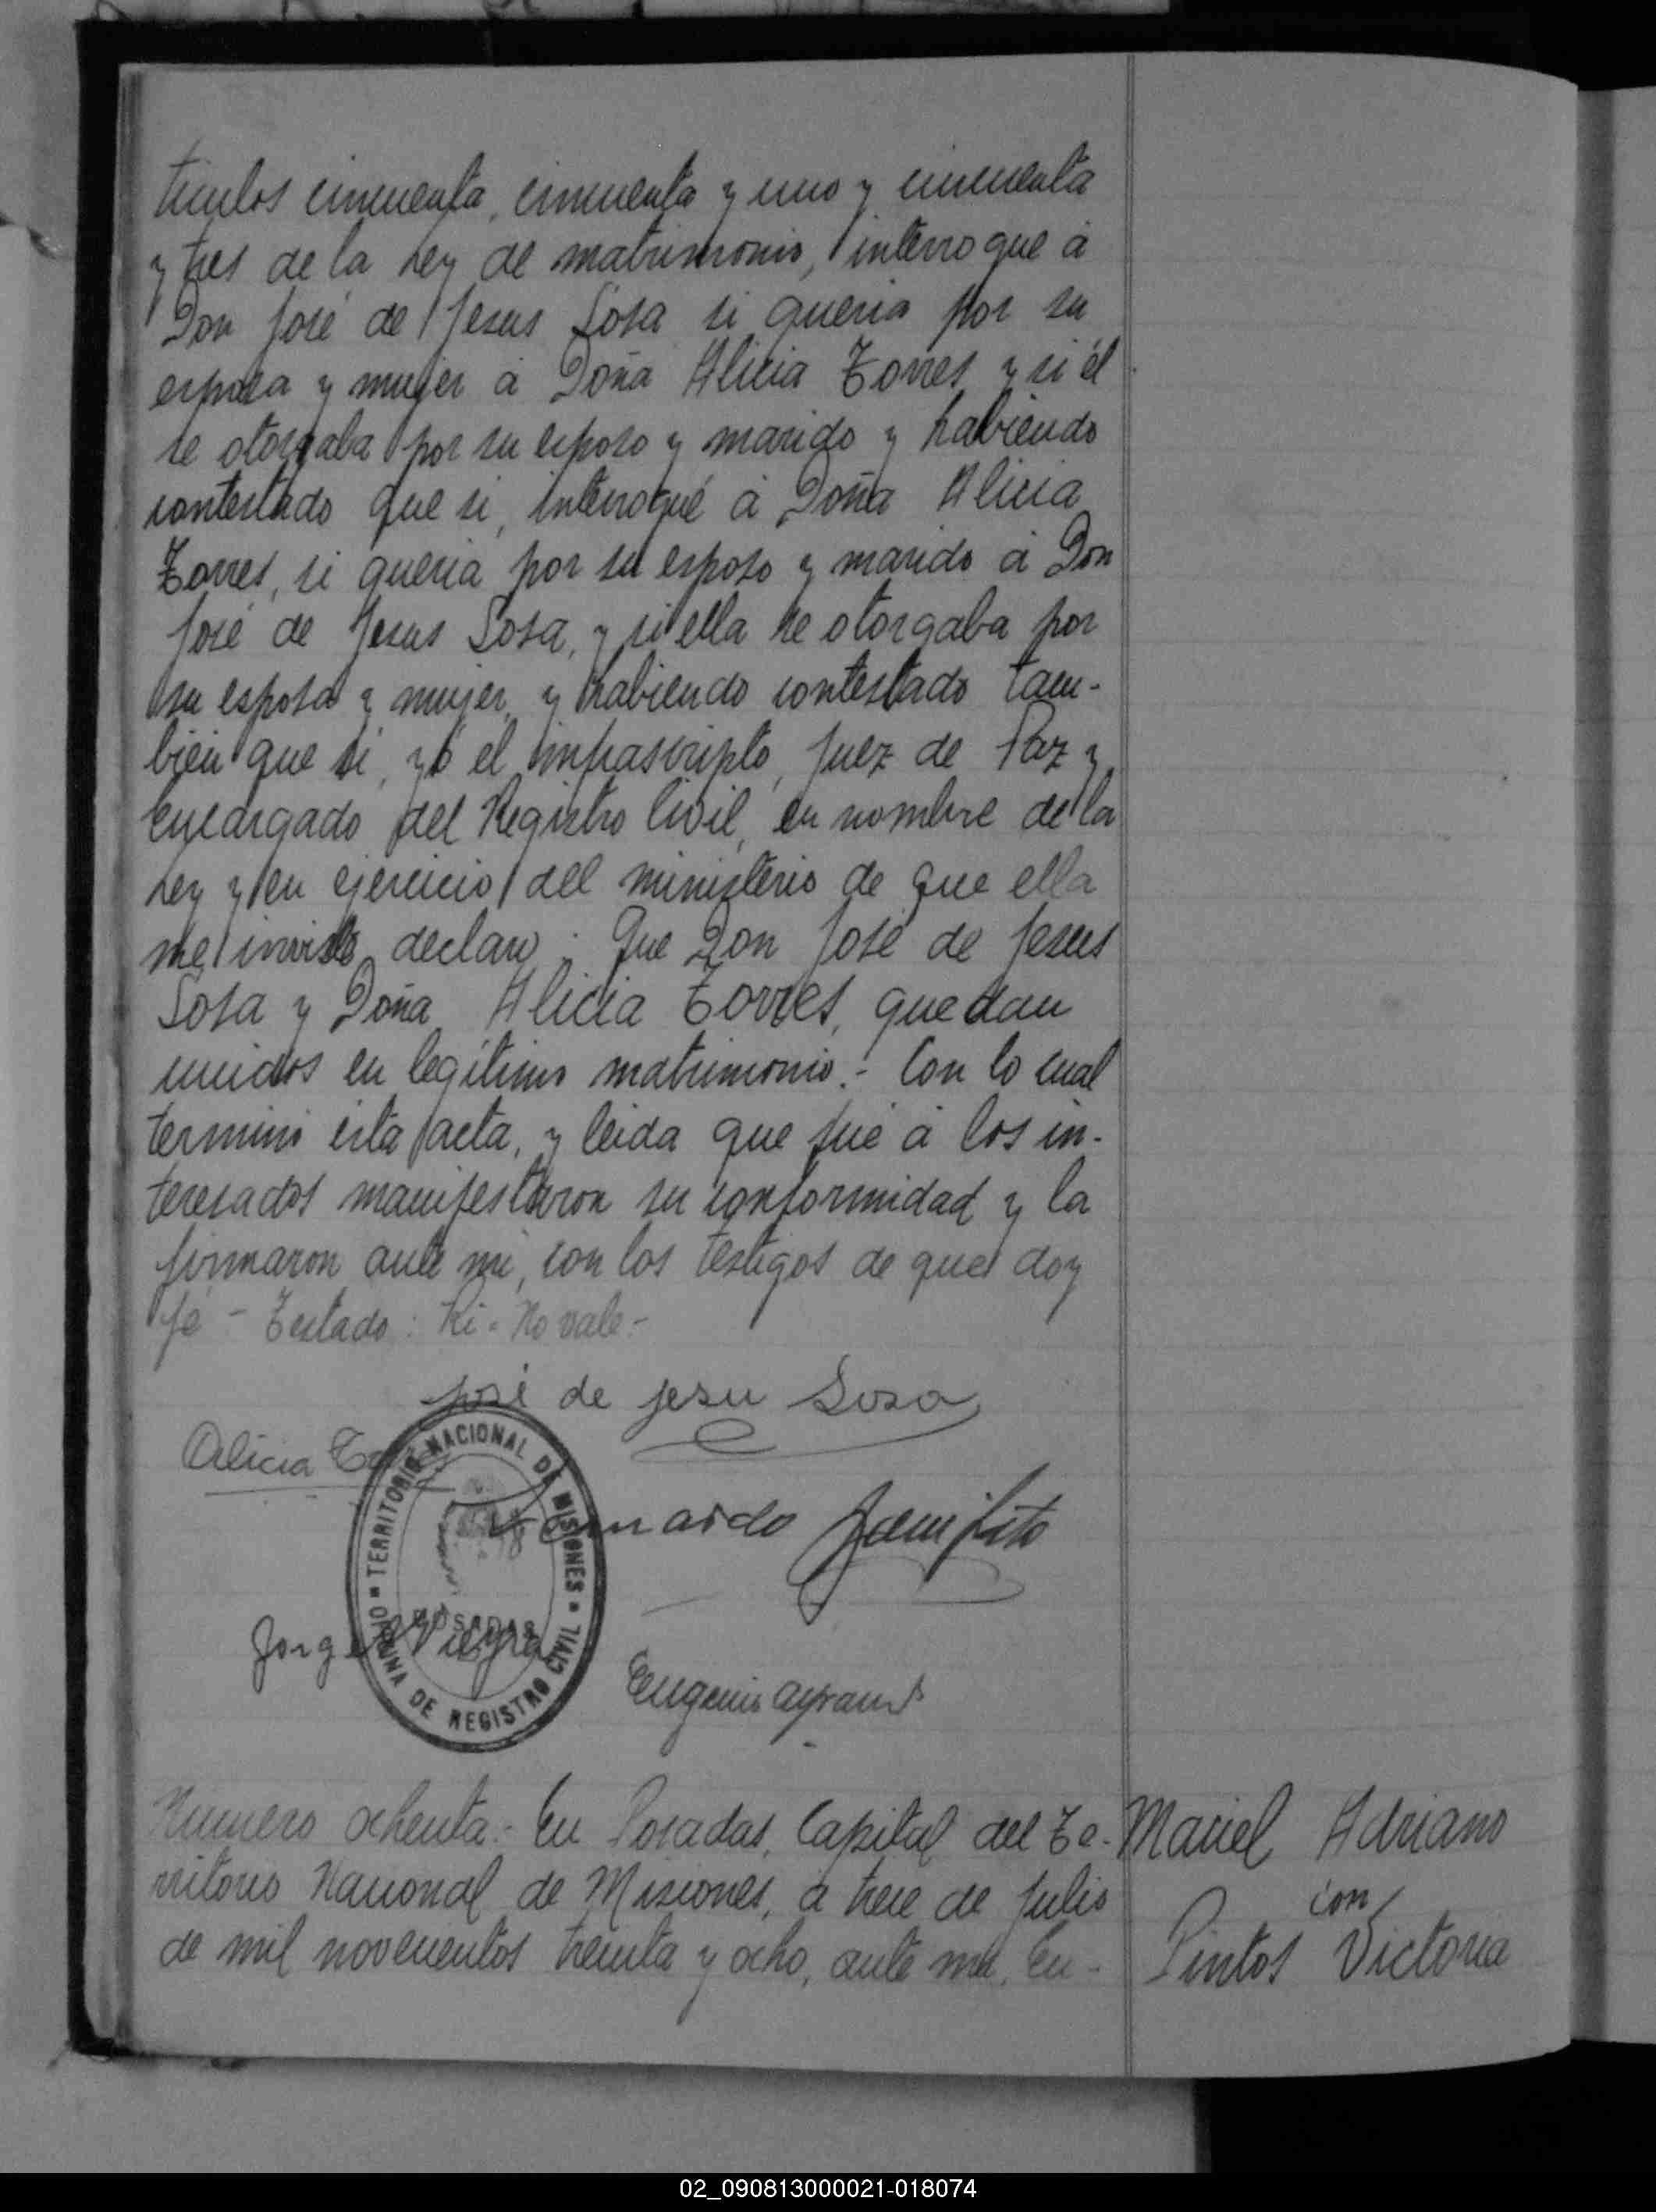 tículos cincuenta, cincuenta y uno y cincuenta
y tres de la Ley de matrimonio, interrogue á
Don José de Jesus Sosa si queria por su
esposa y mujer á Doña Alicia Torres y si él
se otorgaba por su esposo y marido y habiendo
contestado que si, interrogué á Doña Alicia
Torres, si queria por su esposo y marido á Don
José de Jesus Sosa, y si ella se otorgaba por
su esposa y mujer, y habiendo contestado tam-
bien que si, yó el infrascripto, Juez de Paz y
Encargado del Registro Civil, en nombre de la
Ley y en ejercicio del ministerio de que ella
me inviste declaro: Que Don José de Jesus
Sosa y Doña Alicia Torres, quedan
unidos en legitimo matrimonio.- Con lo cual
terminó esta acta, y leida que fué á los in-
teresados manifestaron su conformidad y la
firmaron ante mi, con los testigos de que doy
fé - Testado: Ki - No vale.-
José de jesu Sosa
Alicia
TERRITORIO NACIONAL DE MISIONES
POSADAS
DE REGISTRO CIVIL
Jorge Vieyra
Eugenio
Numero ochenta.- En Posadas, Capital del Te-
rritorio Nacional de Misiones, á trece de Julio
de mil novecientos treinta y ocho, ante mi, En-
Maciel Adriano
con
Pintos Victoria
02_090813000021-018074